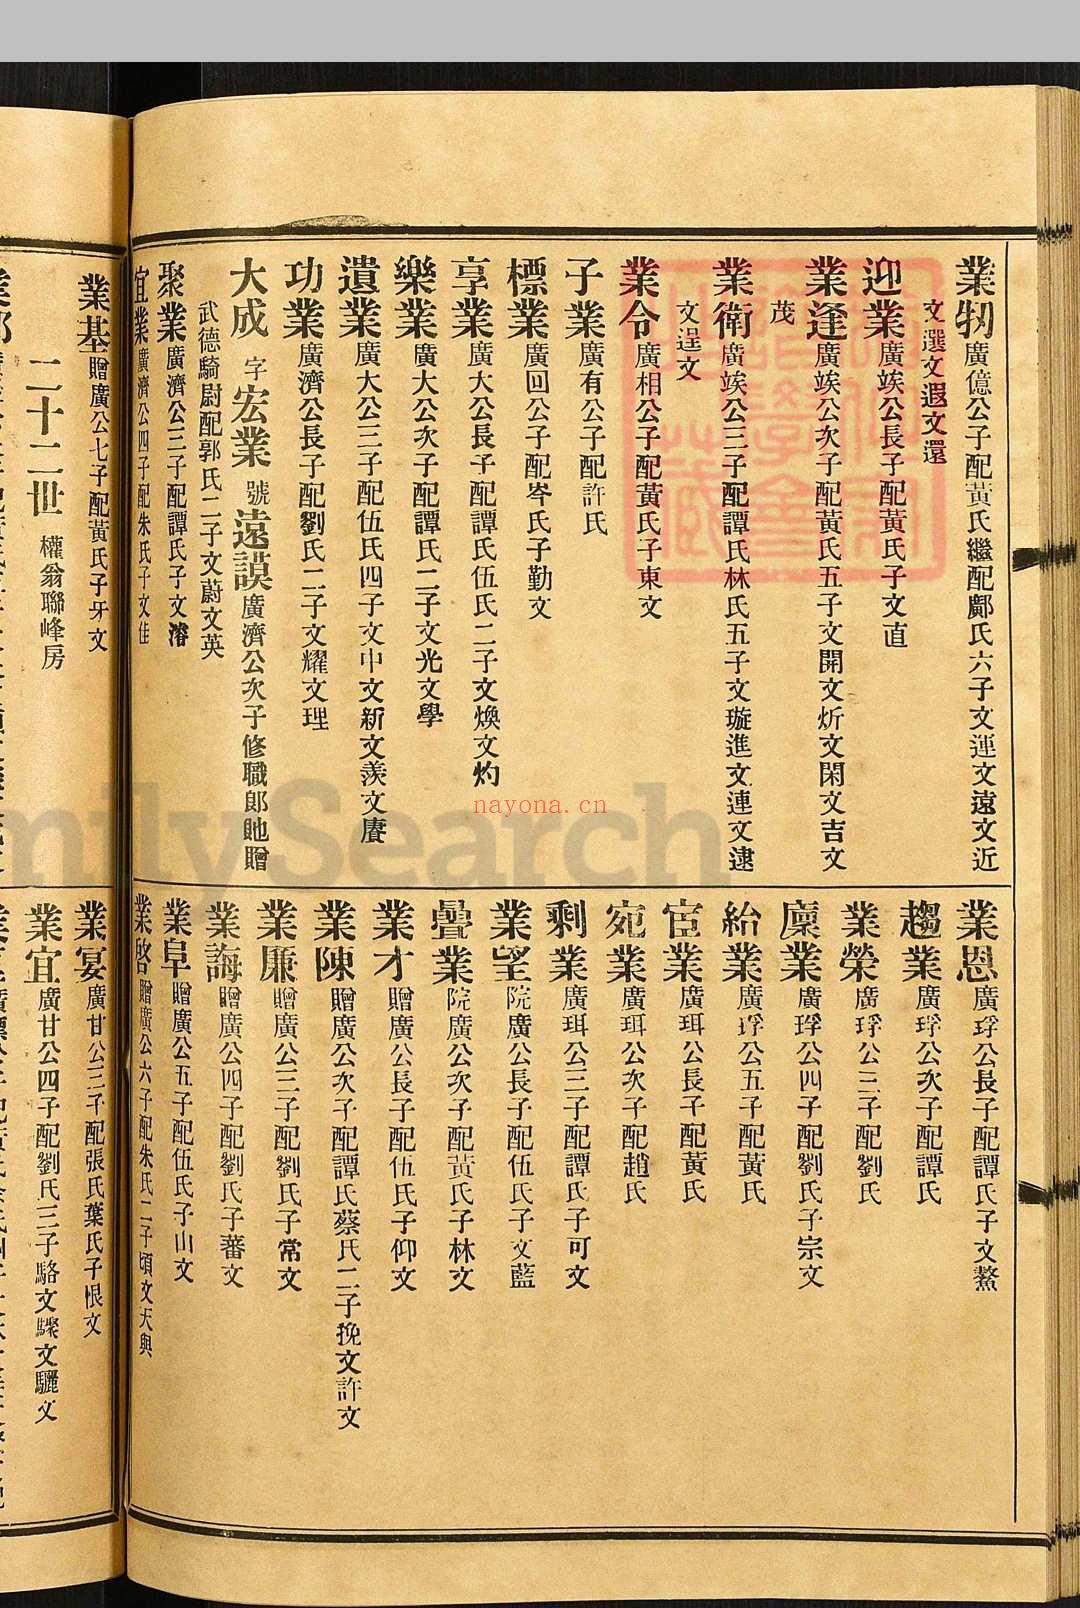 業牣廣億公子配黃氏繼配鄺氏六子文運文遠文近
文選文遐文還
迎業廣竢公長子配黃氏子文直
業逢廣竢公次子配黃氏五子文開文炘文閑文吉文
茂
業衛廣竢公三子配譚氏林氏五子文璇進文連文逮
文逞文
業令廣相公子配黃氏子東文
子業廣有公子配許氏
標業廣回公子配岑氏子勤文
享業廣大公長子配譚氏伍氏二子文煥文灼
樂業廣大公次子配譚氏二子文光文學
遺業廣大公三子配伍氏四子文中文新文羨文賡
功業廣濟公長子配劉氏二子文耀文理
大成字宏業號遠謨廣濟公次子修職郎貤贈
武德騎尉配郭氏二子文蔚文英
聚業廣濟公三子配譚氏子文溶
宜業廣濟公四子配朱氏子文佳
業恩廣琈公長子配譚氏子文鰲
趨業廣琈公次子配譚氏
業榮廣琈公三子配劉氏
廩業廣琈公四子配劉氏子宗文
紿業廣琈公五子配黃氏
宦業廣珥公長子配黃氏
宛業廣珥公次子配趙氏
剩業廣珥公三子配譚氏子可文
業望院廣公長子配伍氏子文藍
疊業院廣公次子配黃氏子林文
業才贈廣公長子配伍氏子仰文
業陳贈廣公次子配譚氏蔡氏二子挽文許文
業廉贈廣公三子配劉氏子常文
業誨贈廣公四子配劉氏子蕃文
業阜贈廣公五子配伍氏子山文
業啓贈廣公六子配朱氏二子頃文天與
業基贈廣公七子配黃氏子牙文
二十二世權翁聯峰房
業宴廣甘公三子配張氏葉氏子恨文
業宜廣甘公四子配劉氏三子駱文驟文驪文
milySearch
nayona.cn